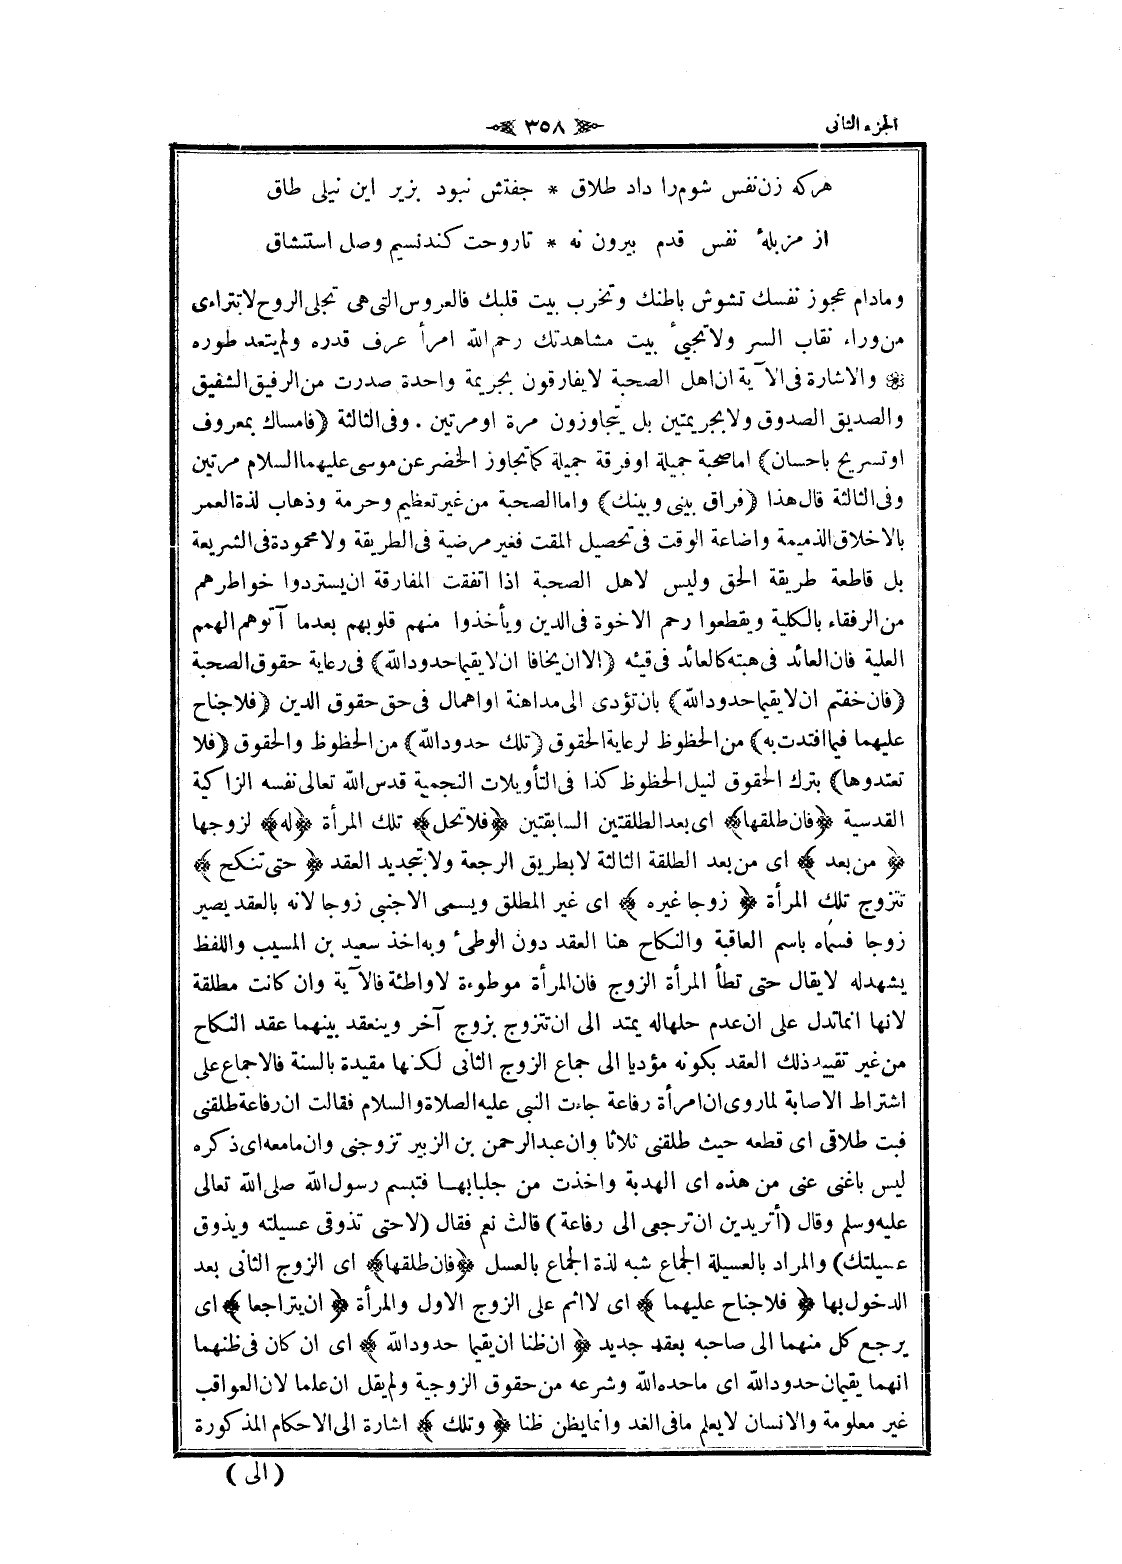 الجزء الثانى
٣٥٨
هركه زن نفس شوم را داد طلاق * جفتش نبود بزير اين نيلى طاق
از مزبلهٔ نفس قدم بيرون نه * تا روحت كند نسيم وصل استنشاق
ومادام عجوز نفسك تشوش باطنك وتخرب بيت قلبك فالعروس التى هى تجلى الروح لا تتراءى
من وراء نقاب السر ولا تجيئ بيت مشاهدتك رحم الله امرأ عرف قدره ولم يتعد طوره
* والاشارة فى الآية ان اهل الصحبة لا يفارقون بجريمة واحدة صدرت من الرفيق الشفيق
والصديق الصدوق ولا بجريمتين بل يتجاوزون مرة او مرتين . وفى الثالثة (فامساك بمعروف
او تسريح باحسان) اما صحبة جميلة او فرقة جميلة كما تجاوز الخضر عن موسى عليهما السلام مرتين
وفى الثالثة قال هذا (فراق بينى وبينك) واما الصحبة من غير تعظيم وحرمة وذهاب لذة العمر
بالاخلاق الذميمة واضاعة الوقت فى تحصيل المقت فغير مرضية فى الطريقة ولا محمودة فى الشريعة
بل قاطعة طريقة الحق وليس لاهل الصحبة اذا اتفقت المفارقة ان يستردوا خواطرهم
من الرفقاء بالكلية ويقطعوا رحم الاخوة فى الدين ويأخذوا منهم قلوبهم بعدما آتوهم الهمم
العلية فان العائد فى هبته كالعائد فى قيئه (الا ان يخافا ان لا يقيما حدود الله) فى رعاية حقوق الصحبة
(فان خفتم ان لا يقيما حدود الله) بان تؤدى الى مداهنة او اهمال فى حق حقوق الدين (فلا جناح
عليهما فيما افتدت به) من الحظوظ لرعاية الحقوق (تلك حدود الله) من الحظوظ والحقوق (فلا
تعتدوها) بترك الحقوق لنيل الحظوظ كذا فى التأويلات النجمية قدس الله تعالى نفسه الزاكية
القدسية ﴿فان طلقها﴾ اى بعد الطلقتين السابقتين ﴿فلا تحل﴾ تلك المرأة ﴿له﴾ لزوجها
﴿من بعد﴾ اى من بعد الطلقة الثالثة لا بطريق الرجعة ولا بتجديد العقد ﴿حتى تنكح﴾
تتزوج تلك المرأة ﴿زوجا غيره﴾ اى غير المطلق ويسمى الاجنبى زوجا لانه بالعقد يصير
زوجا فسماه باسم العاقبة والنكاح هنا العقد دون الوطئ وبه اخذ سعيد بن المسيب واللفظ
يشهد له لا يقال حتى تطأ المرأة الزوج فان المرأة موطوءة لا واطئة فالآية وان كانت مطلقة
لانها انما تدل على ان عدم حلها له يمتد الى ان تتزوج بزوج آخر وينعقد بينهما عقد النكاح
من غير تقييد ذلك العقد بكونه مؤديا الى جماع الزوج الثانى لكنها مقيدة بالسنة فالاجماع على
اشتراط الاصابة لما روى ان امرأة رفاعة جاءت النبى عليه الصلاة والسلام فقالت ان رفاعة طلقنى
فبت طلاقى اى قطعه حيث طلقنى ثلاثا وان عبد الرحمن بن الزبير تزوجنى وان ما معه اى ذكره
ليس باغنى عنى من هذه اى الهدبة واخذت من جلبابها فتبسم رسول الله صلى الله تعالى
عليه وسلم وقال (أتريدين ان ترجعى الى رفاعة) قالت نعم فقال (لا حتى تذوقى عسيلته ويذوق
عسيلتك) والمراد بالعسيلة الجماع شبه لذة الجماع بالعسل ﴿فان طلقها﴾ اى الزوج الثانى بعد
الدخول بها ﴿فلا جناح عليهما﴾ اى لا اثم على الزوج الاول والمرأة ﴿ان يتراجعا﴾ اى
يرجع كل منهما الى صاحبه بعقد جديد ﴿ان ظنا ان يقيما حدود الله﴾ اى ان كان فى ظنهما
انهما يقيمان حدود الله اى ما حده الله وشرعه من حقوق الزوجية ولم يقل ان علما لان العواقب
غير معلومة والانسان لا يعلم ما فى الغد وانما يظن ظنا ﴿وتلك﴾ اشارة الى الاحكام المذكورة
(الى)